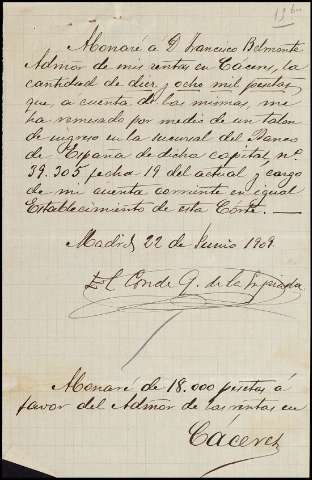 Abonaré á D. Francisco Belmonte
Admor de mis rentas en Cáceres, la
cantidad de diez y ocho mil pesetas
que, a cuenta de las mismas, me
ha remesado por medio de un talon
de ingreso en la sucursal del Banco
de España de dicha capital, nº
39.305 fecha 19 del actual y cargo
de mi cuenta corriente en igual
Establecimiento de esta Córte.
Madrid 22 de Junio 1909.
El Conde G. de la
Abonaré de 18.000 pesetas á
favor del Admór de las rentas en
Cáceres